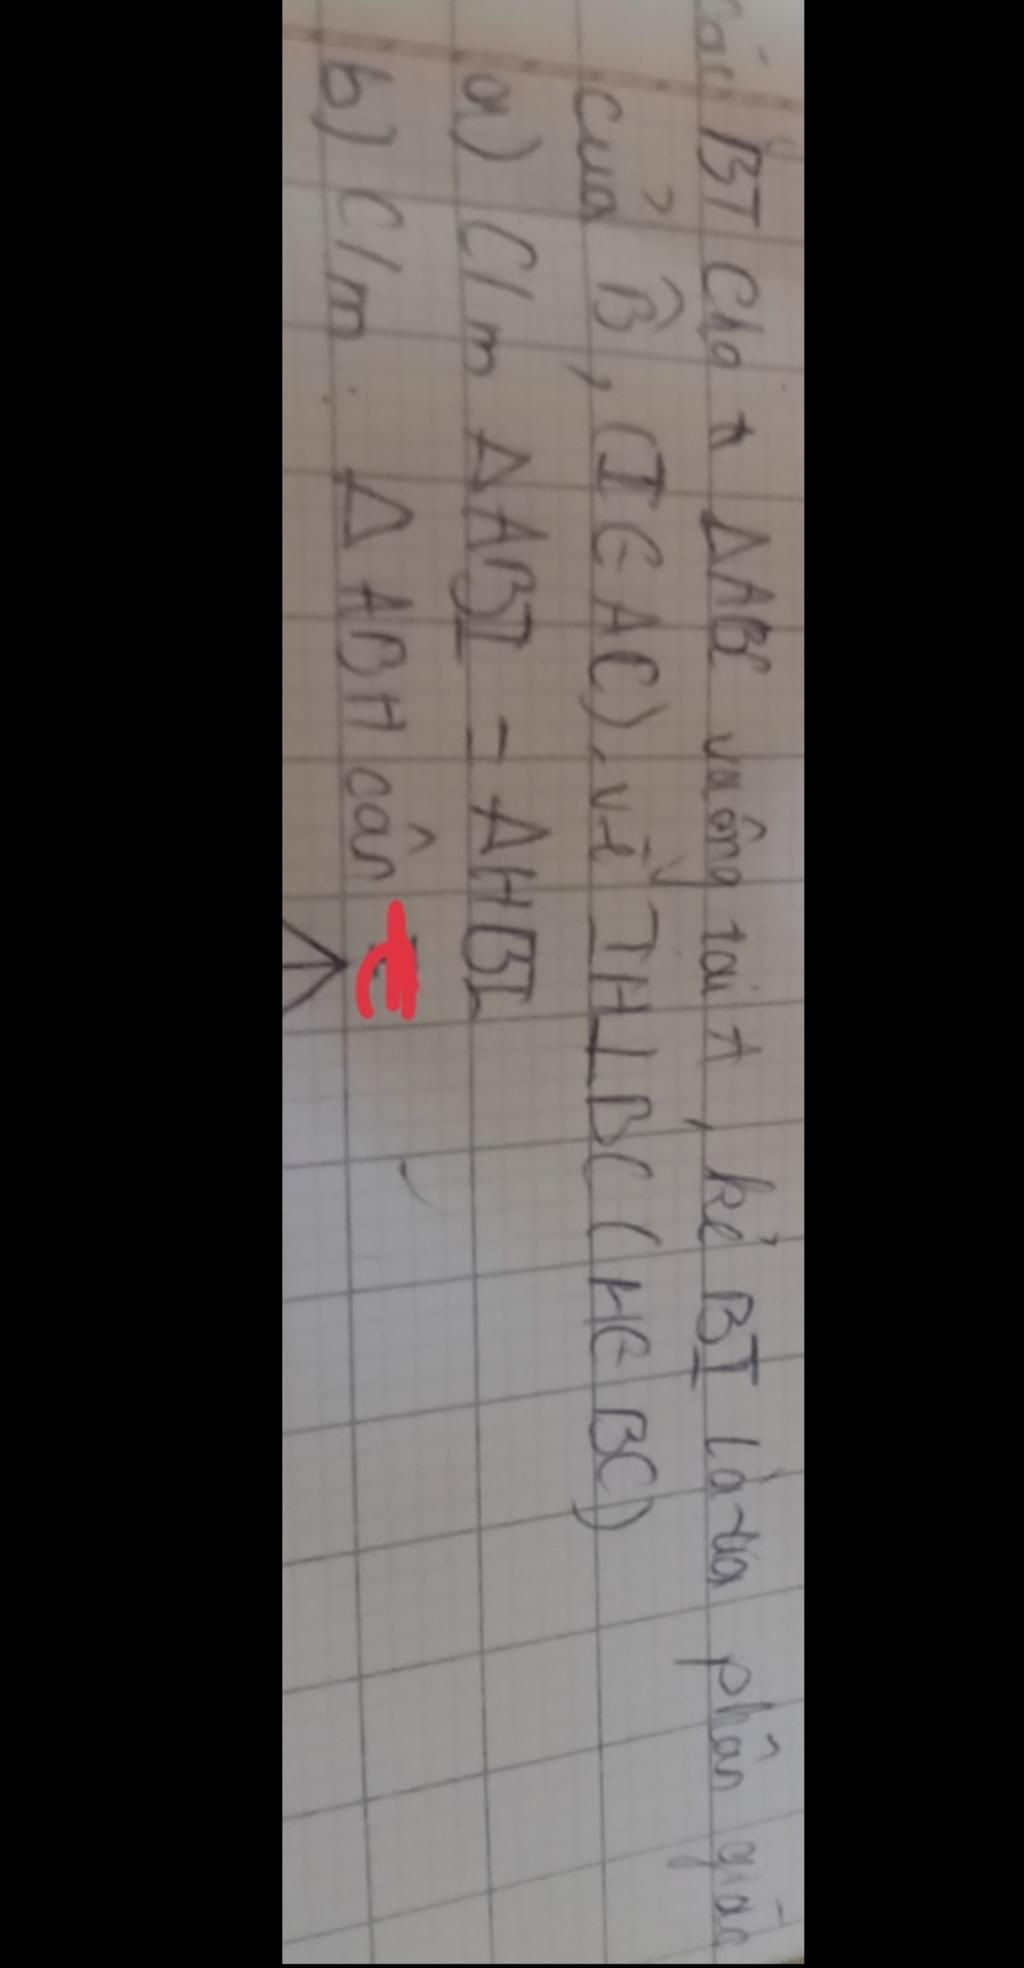 BT Cho ΔABC vuông tại A, kẻ BI là tia phân giác
của B̂, (I ∈ AC), vẽ IH⊥BC (H∈BC)
a) C/m ΔABI = ΔHBI
b) C/m ΔABH cân